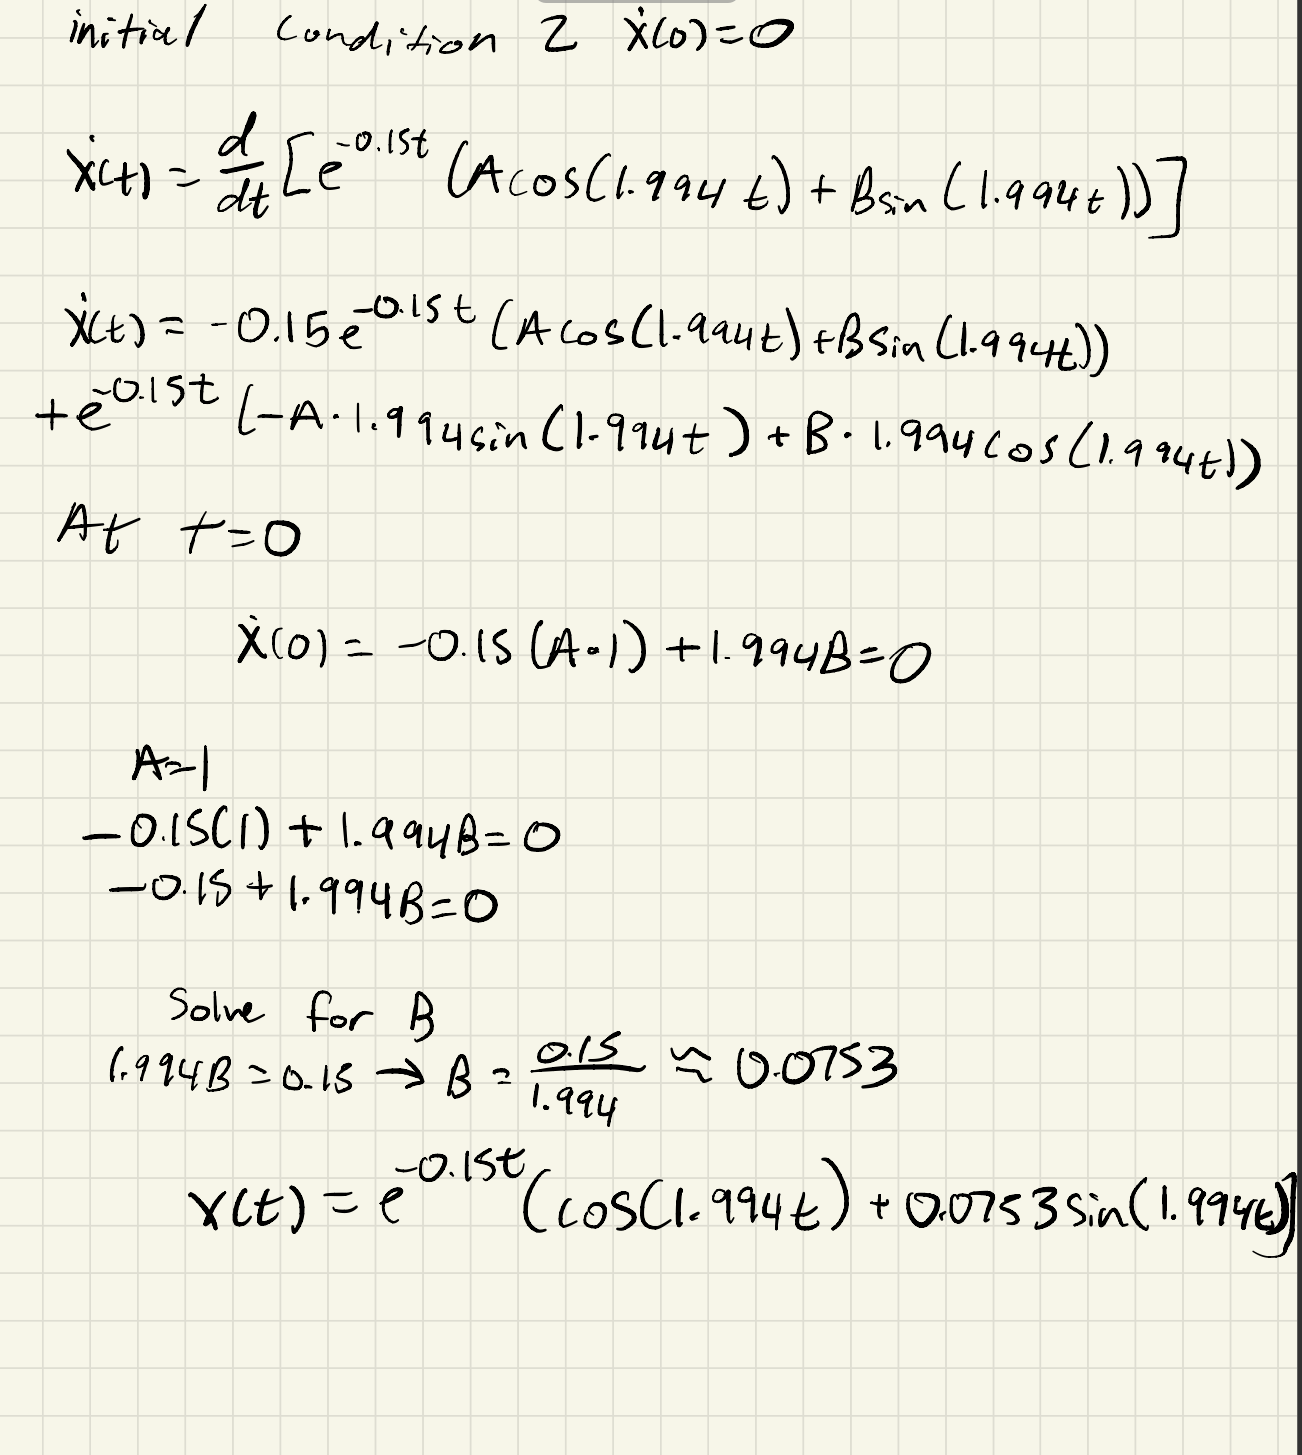 initial condition 2 ẋ(0)=0
ẋ(t) = d/dt [e^-0.15t (Acos(1.994t) + Bsin(1.994t))]
ẋ(t) = -0.15e^-0.15t (Acos(1.994t)+Bsin(1.994t))
+e^-0.15t (-A·1.994sin(1.994t) + B·1.994cos(1.994t))
At t=0
ẋ(0) = -0.15 (A·1) + 1.994B=0
A=1
-0.15(1) + 1.994B=0
-0.15+1.994B=0
Solve for B
1.994B=0.15 → B = 0.15/1.994 ≈ 0.0753
x(t) = e^-0.15t (cos(1.994t) + 0.0753sin(1.994t)]